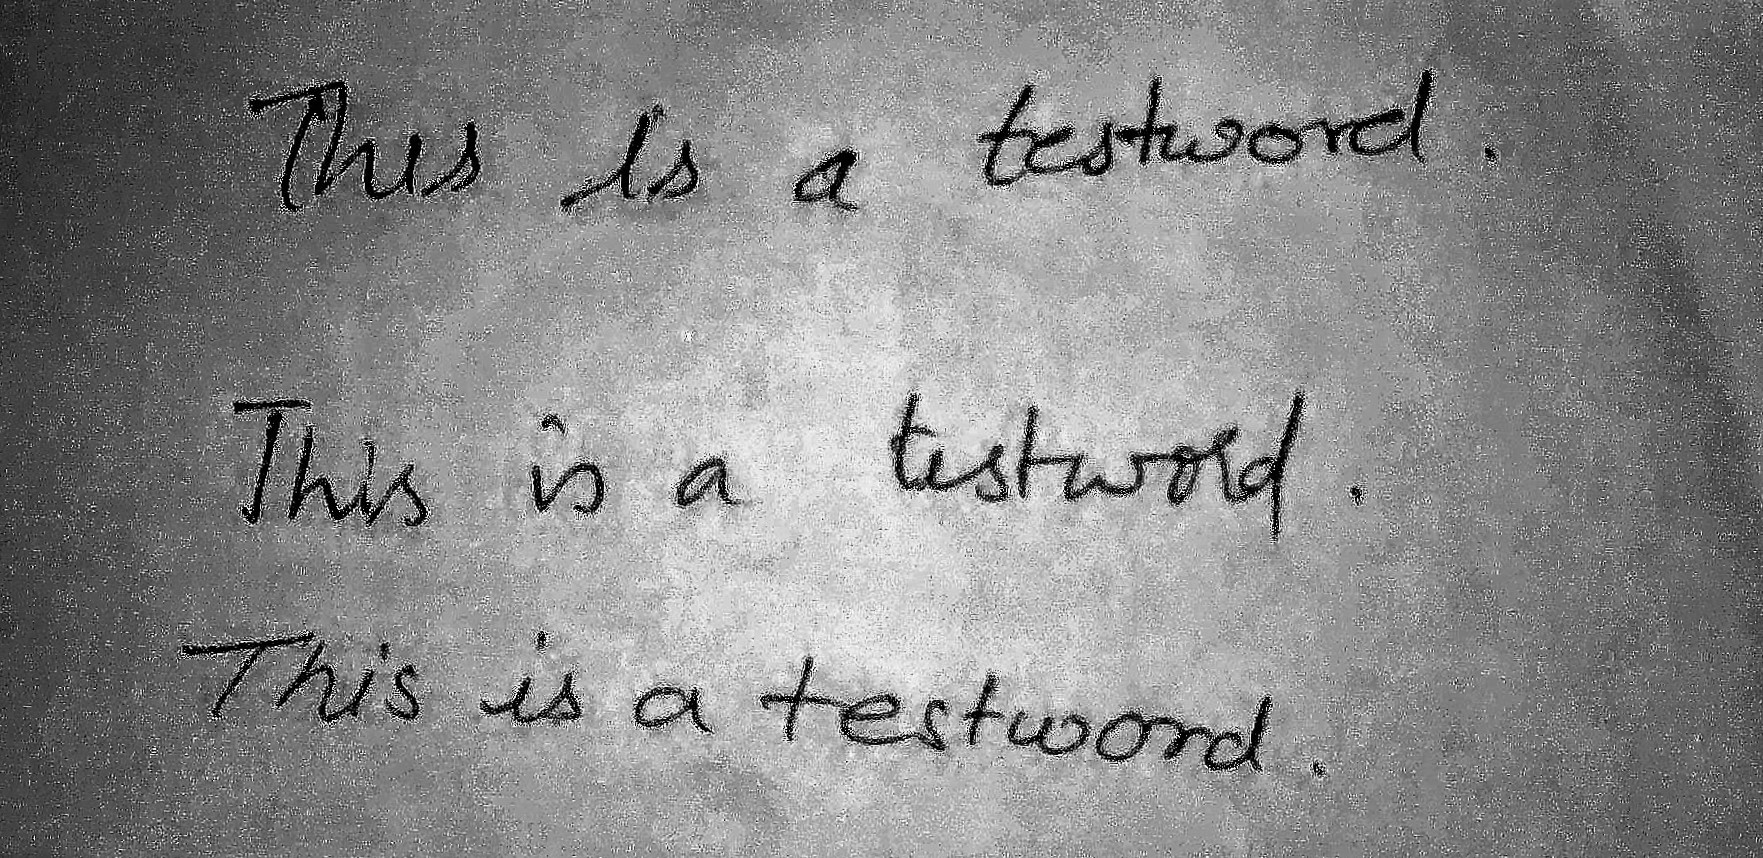 This is a testword.
This is a testword.
This is a testword.